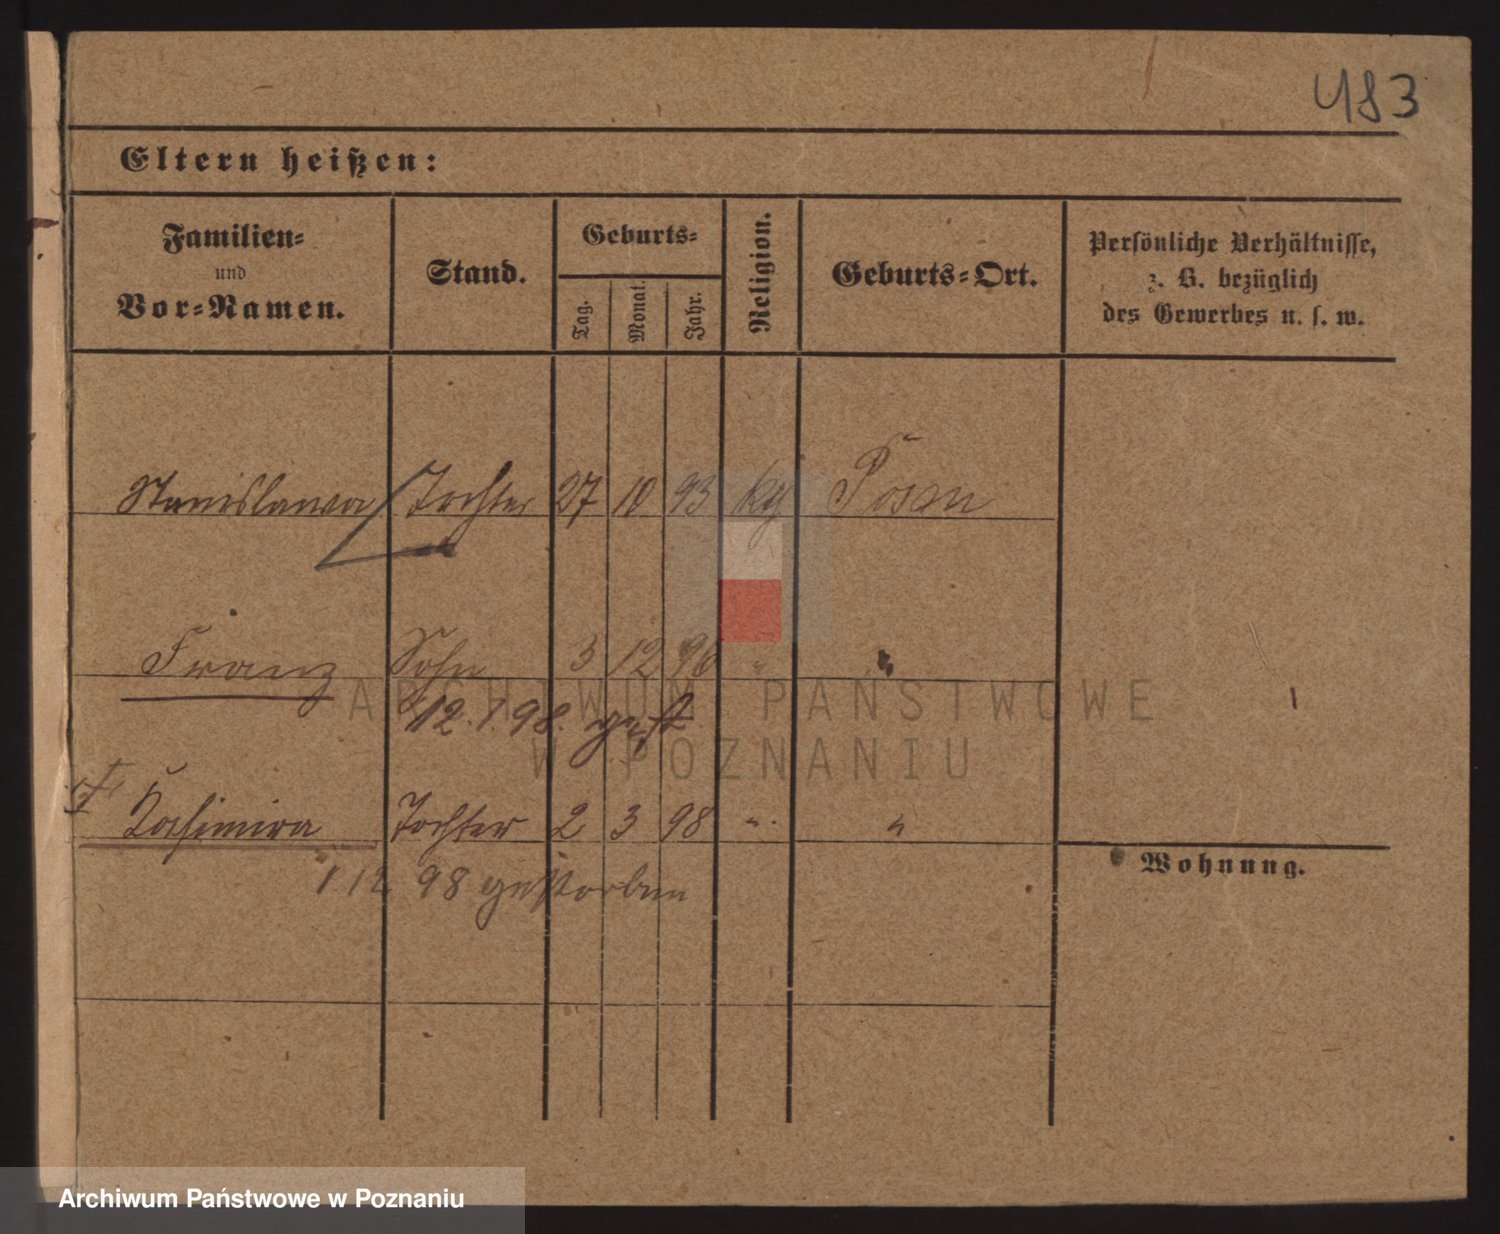 483
Eltern heißen:
Familien-
und
Vor-Namen.
Stand.
Geburts-
Tag.
Monat.
Jahr.
Religion.
Geburts-Ort.
Persönliche Verhältnisse,
z. B. bezüglich
des Gewerbes u. s. w.
Stanislawa Tochter 27 10 93 Posen
Franz Sohn 3 12 96 " "
12. 1. 98. gest
Kasimira Tochter 2 3 98 " "
1 12 98 gestorben
Wohnung.
ARCHIWUM PAŃSTWOWE
W POZNANIU
Archiwum Państwowe w Poznaniu